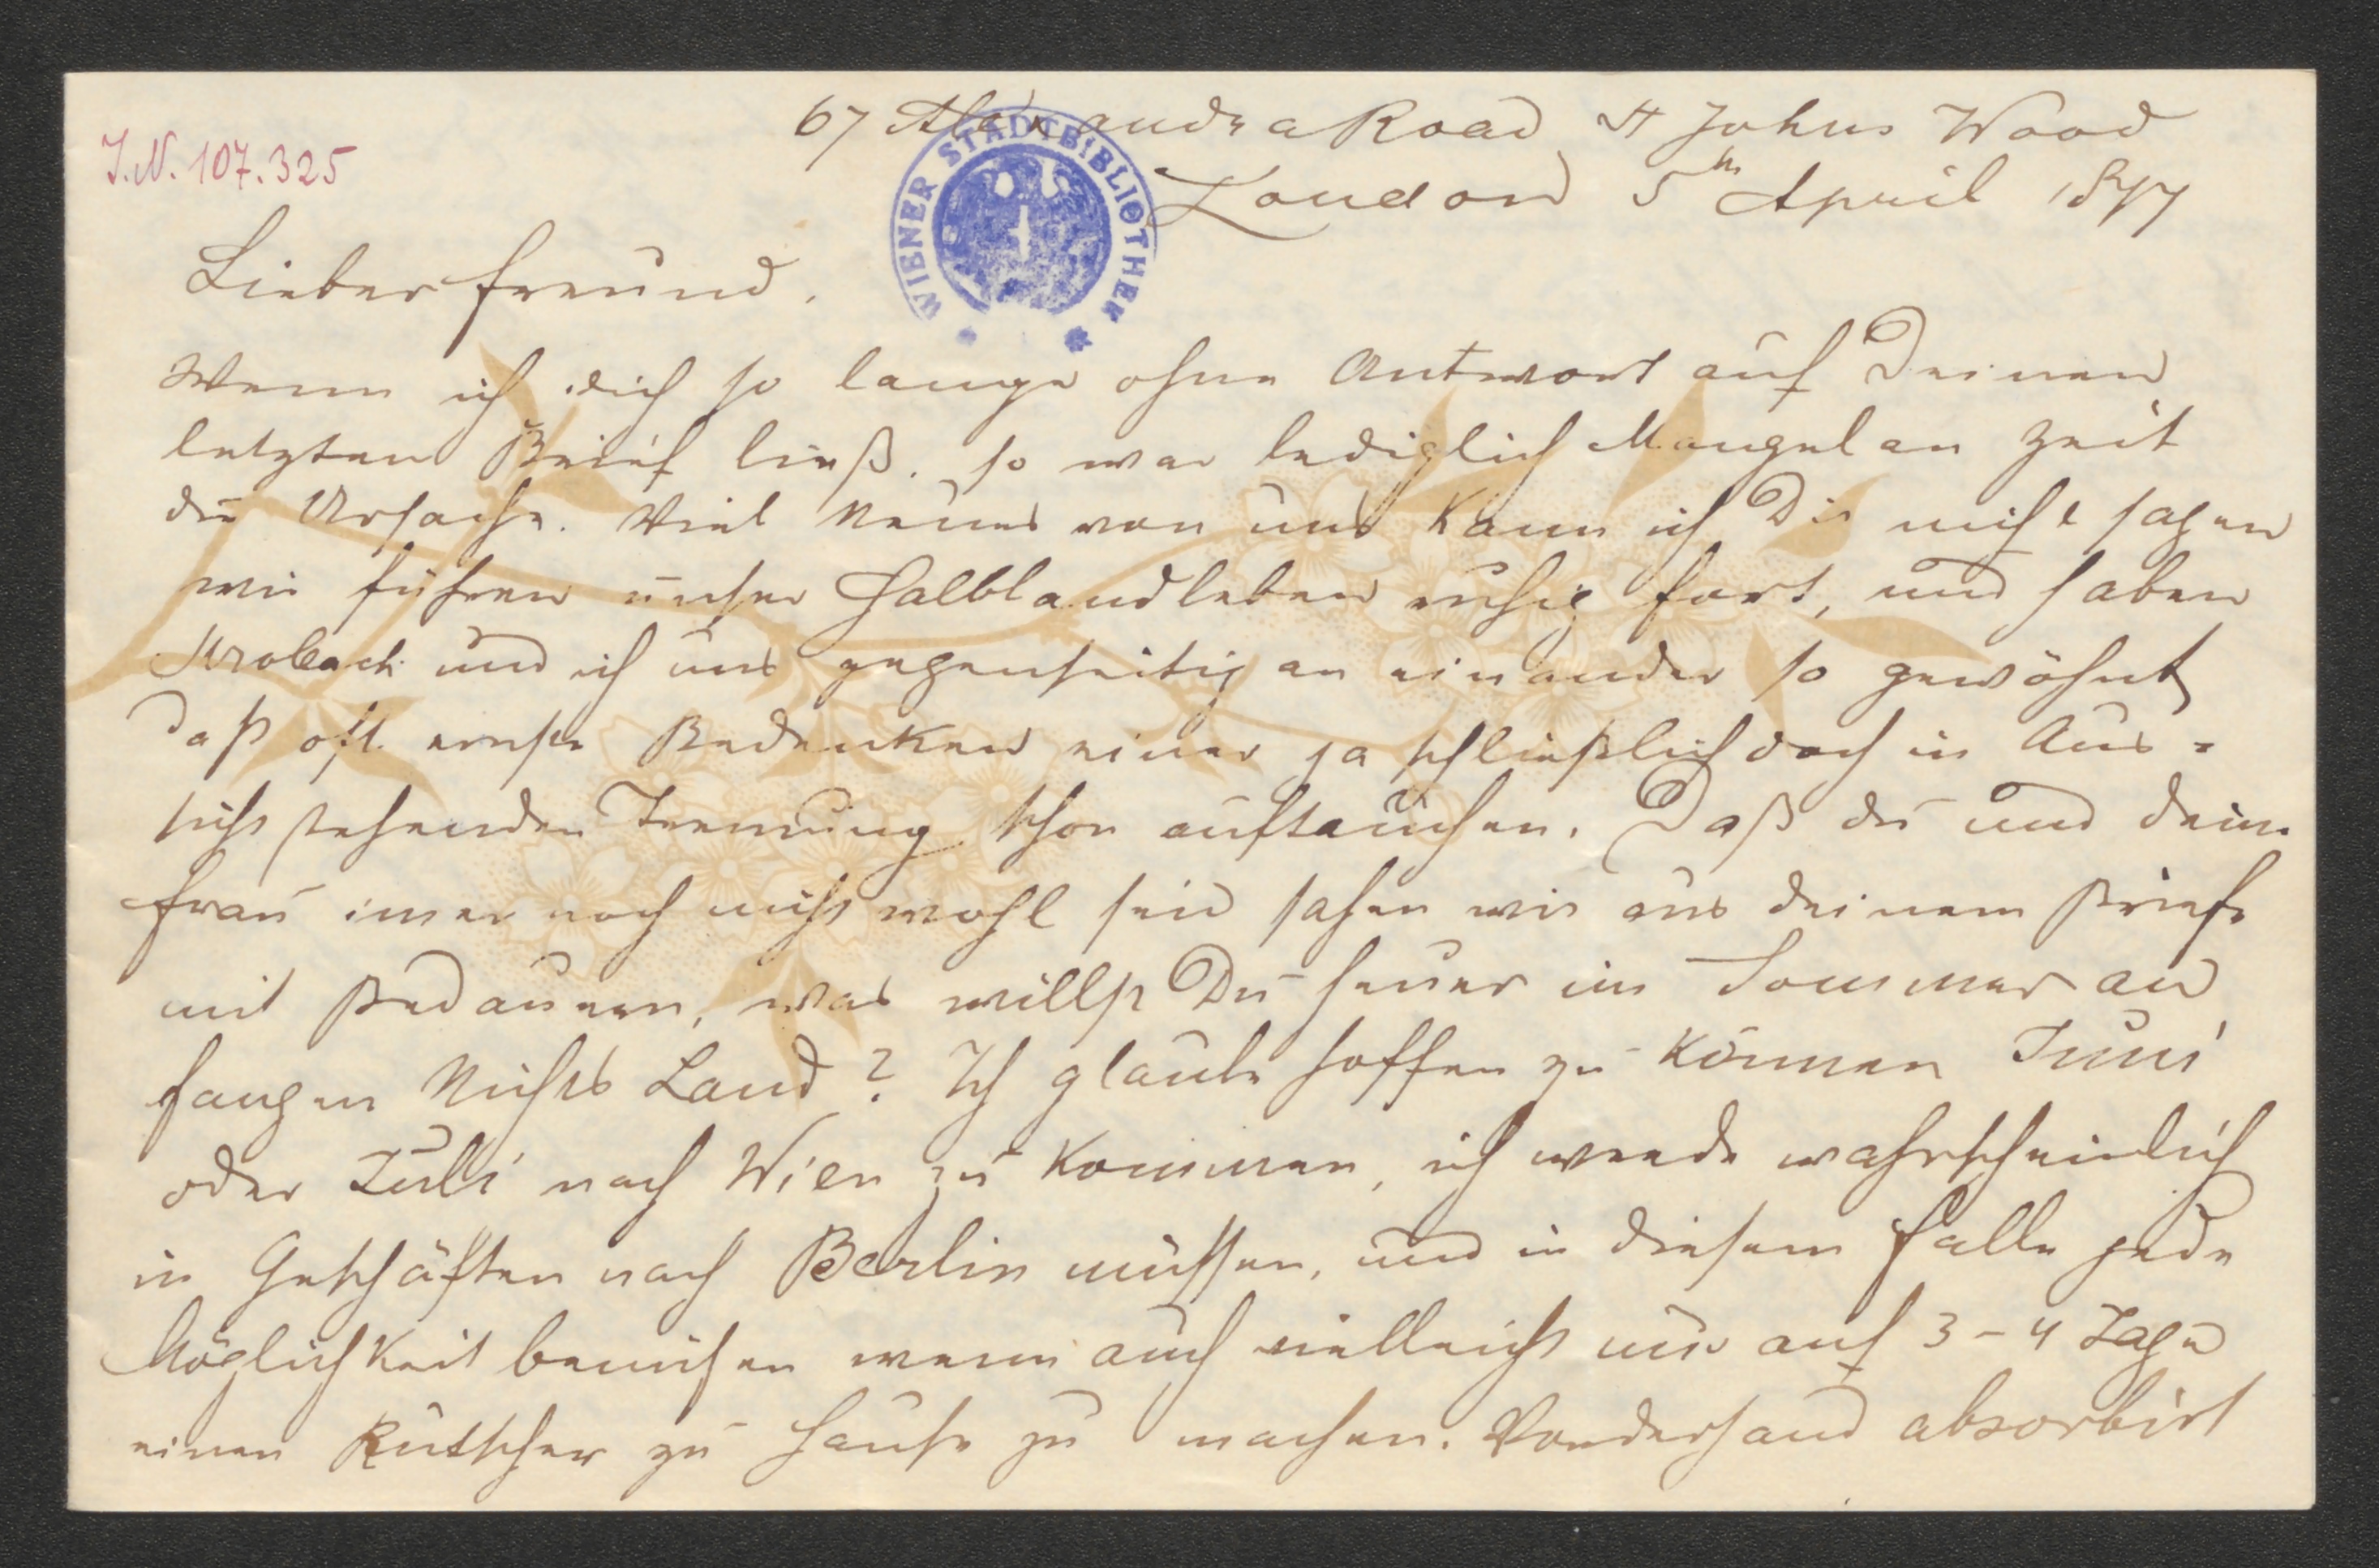 67 Alexandra Road St Johns Wood
J.N. 107.325
London 5th April 1877
WIENER STADTBIBLIOTHEK
Lieber Freund.
Wenn ich dich so lange ohne Antwort auf Deinen
letzten Brief ließ. so war lediglich Mangel an Zeit
die Ursache. Viel Neues von uns kann ich Dir nicht sagen
wir führen unser Halblandleben ruhig fort, und haben
und ich uns gegenseitig an einander so gewöhnt
daß oft ernste Bedenken einer ja schließlich doch in Aus-
sicht stehenden Trennung schon auftauchen. Daß du und deine
Frau immer noch nicht wohl seid sahen wir aus deinem Briefe
mit Bedauern, was willst Du heuer im Sommer an
fangen Nichts Land? Ich glaube hoffen zu können Juni
oder Juli nach Wien zu kommen, ich werde wahrscheinlich
in Geschäften nach Berlin müssen, und in diesem Falle jede
Möglichkeit wenn auch vielleicht nur auf 3-4 Tage
einen Rutscher zu Hause zu machen. Vorderhand absorbirt